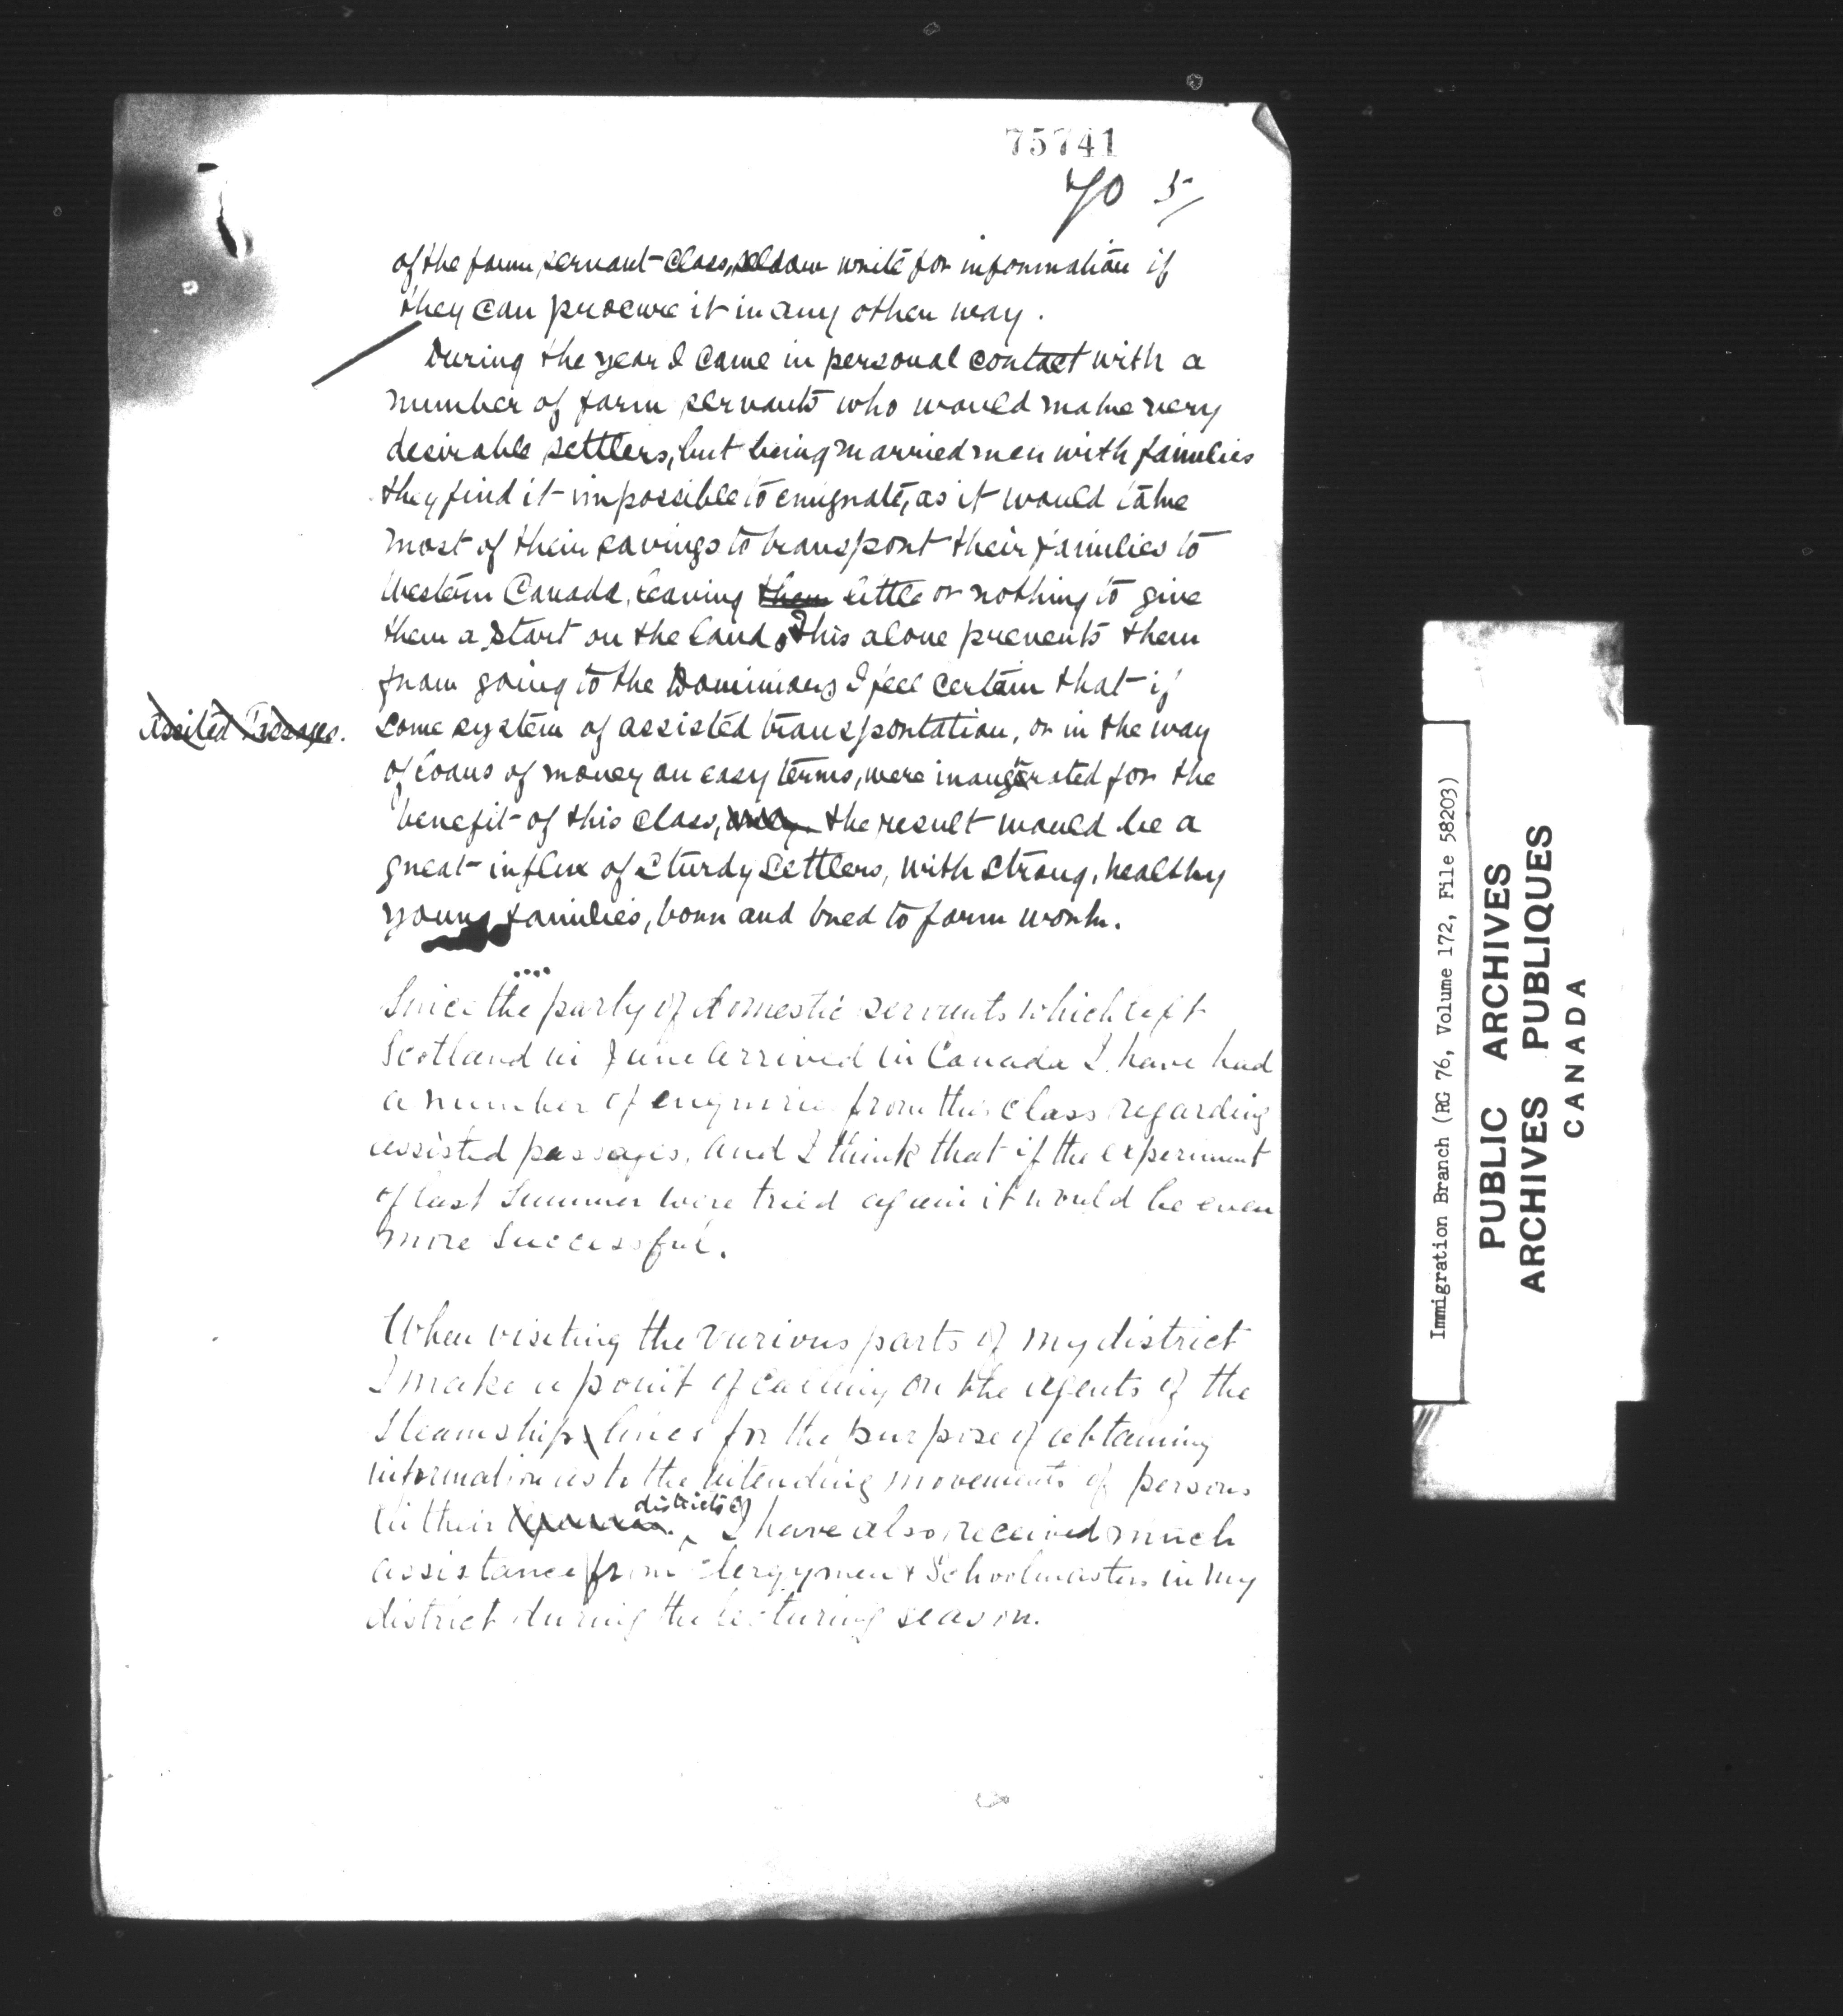 75741
70 5/
of the farm servant class, seldom write for information if
they can procure it in any other way.
During the year I came in personal contact with a
number of farm servants who would make very
desirable settlers, but being married men with families
they find it impossible to emigrate, as it would take
most of their savings to transport their families to
Western Canada, leaving them little or nothing to give
them a start on the land. This alone prevents them
from going to the Dominion, I feel certain that if
Assisted Passages.
some system of assisted transportation, or in the way
of loans of money on easy terms, were inaugurated for the
benefit of this class, the result would be a
great influx of sturdy settlers, with strong, healthy
young families, born and bred to farm work.
Since the party of domestic servants which left
Scotland in June arrived in Canada I have had
a number of enquiries from this class regarding
assisted passages, and I think that if the experiment
of last Summer were tried again it would be even
more successful.
When visiting the various parts of my district
I make a point of calling on the agents of the
Steamship lines for the purpose of obtaining
information as to the intending movements of persons
districts
in their I have also received much
assistance from clergymen & Schoolmasters in my
district during the lecturing season.
Immigration Branch (RG 76, Volume 172, File 58203)
PUBLIC ARCHIVES
ARCHIVES PUBLIQUES
CANADA